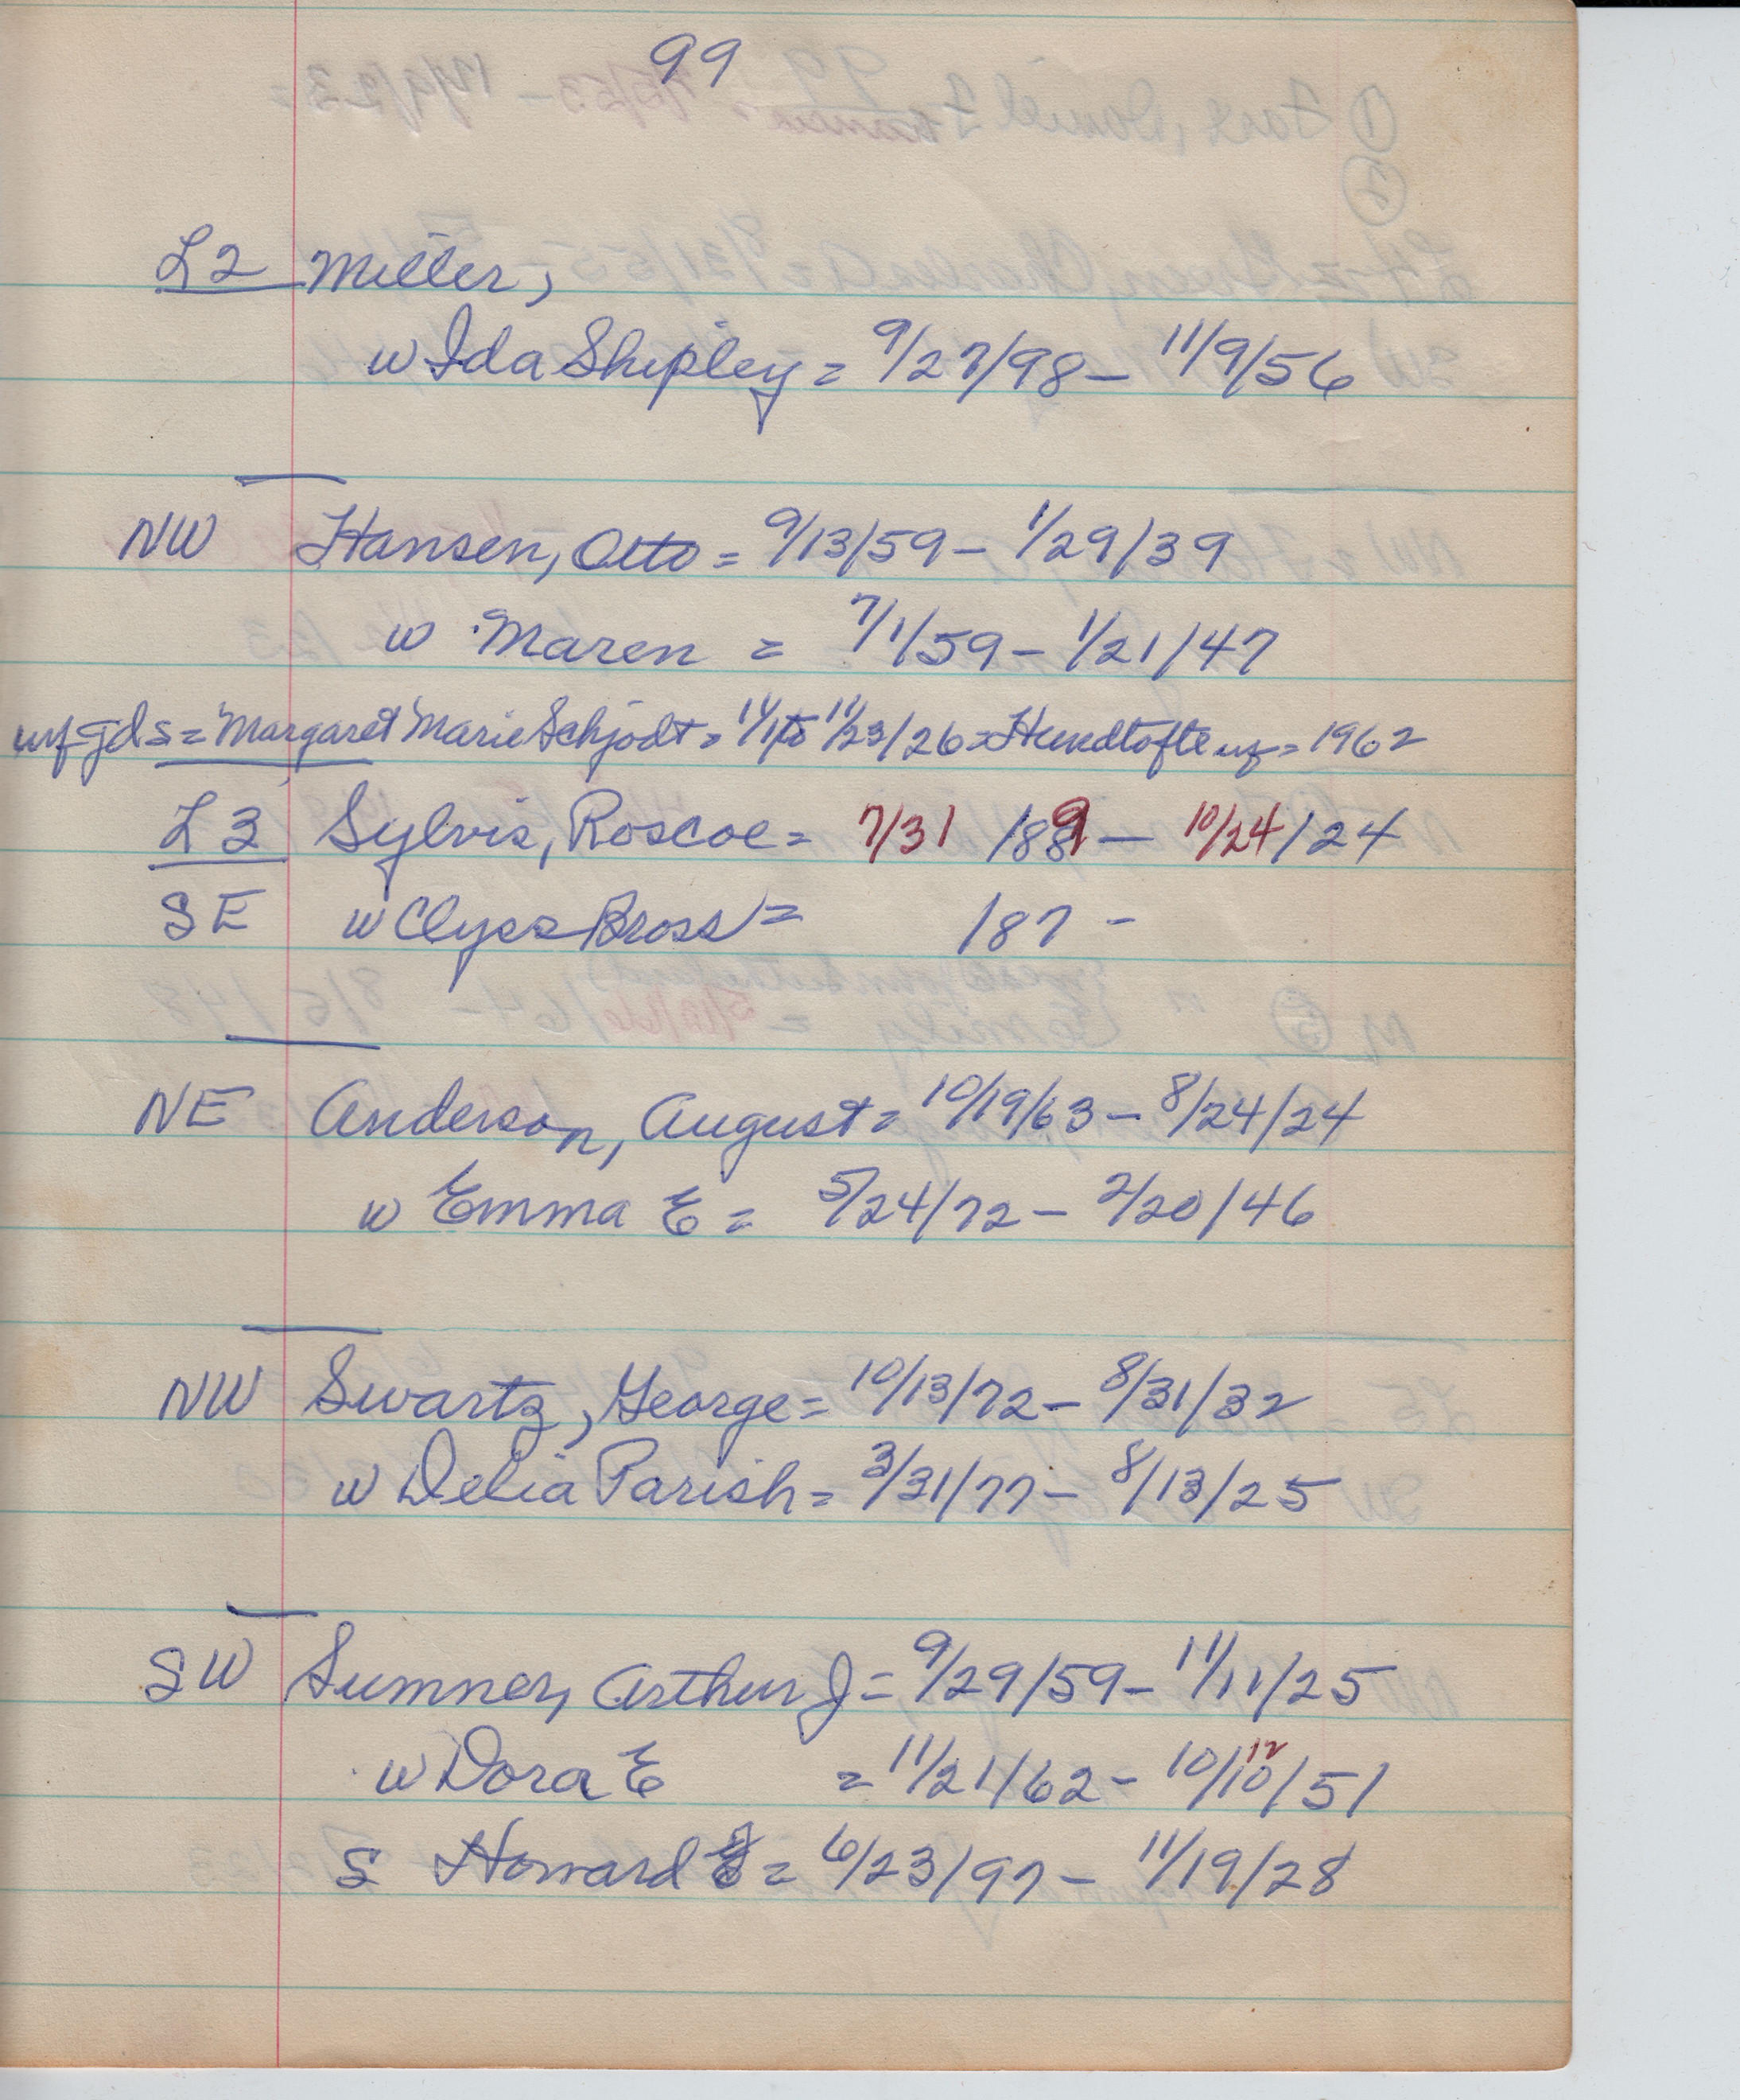 99
L2 Miller,
w Ida Shipley = 9/27/98 - 11/9/56
NW Hansen, Otto = 9/13/59 - 1/29/39
w Maren = 7/1/59 - 1/21/47
Margaret Marie Schjodt = 11/23/26 = Hundtofte = 1962
L3 Sylvis, Roscoe = 7/31 /889 - 10/24/24
SE w Bross = 187 -
NE Anderson, August = 10/19/63 - 8/24/24
w Emma E = 5/24/72 - 2/20/46
NW Swartz, George = 10/13/72 - 8/31/32
w Delia Parish = 3/31/77 - 8/13/25
SW Sumner, Arthur J = 9/29/59 - 11/11/25
w Dora E = 11/21/62 - 10/10/51
12
S Howard = 6/23/97 - 11/19/28